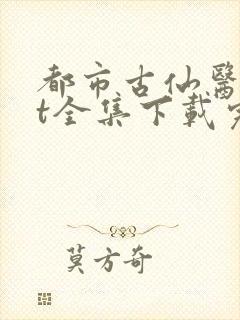 都市古仙醫
t全集下載完
莫方奇